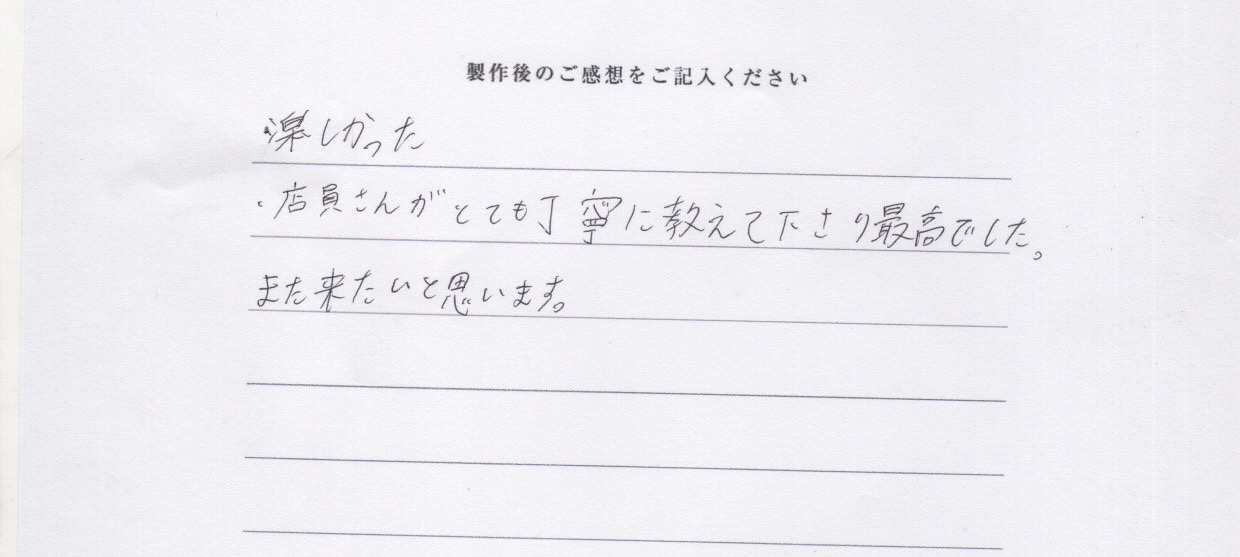 製作後のご感想をご記入ください
・楽しかった
・店員さんがとても丁寧に教えて下さり最高でした。
また来たいと思います。